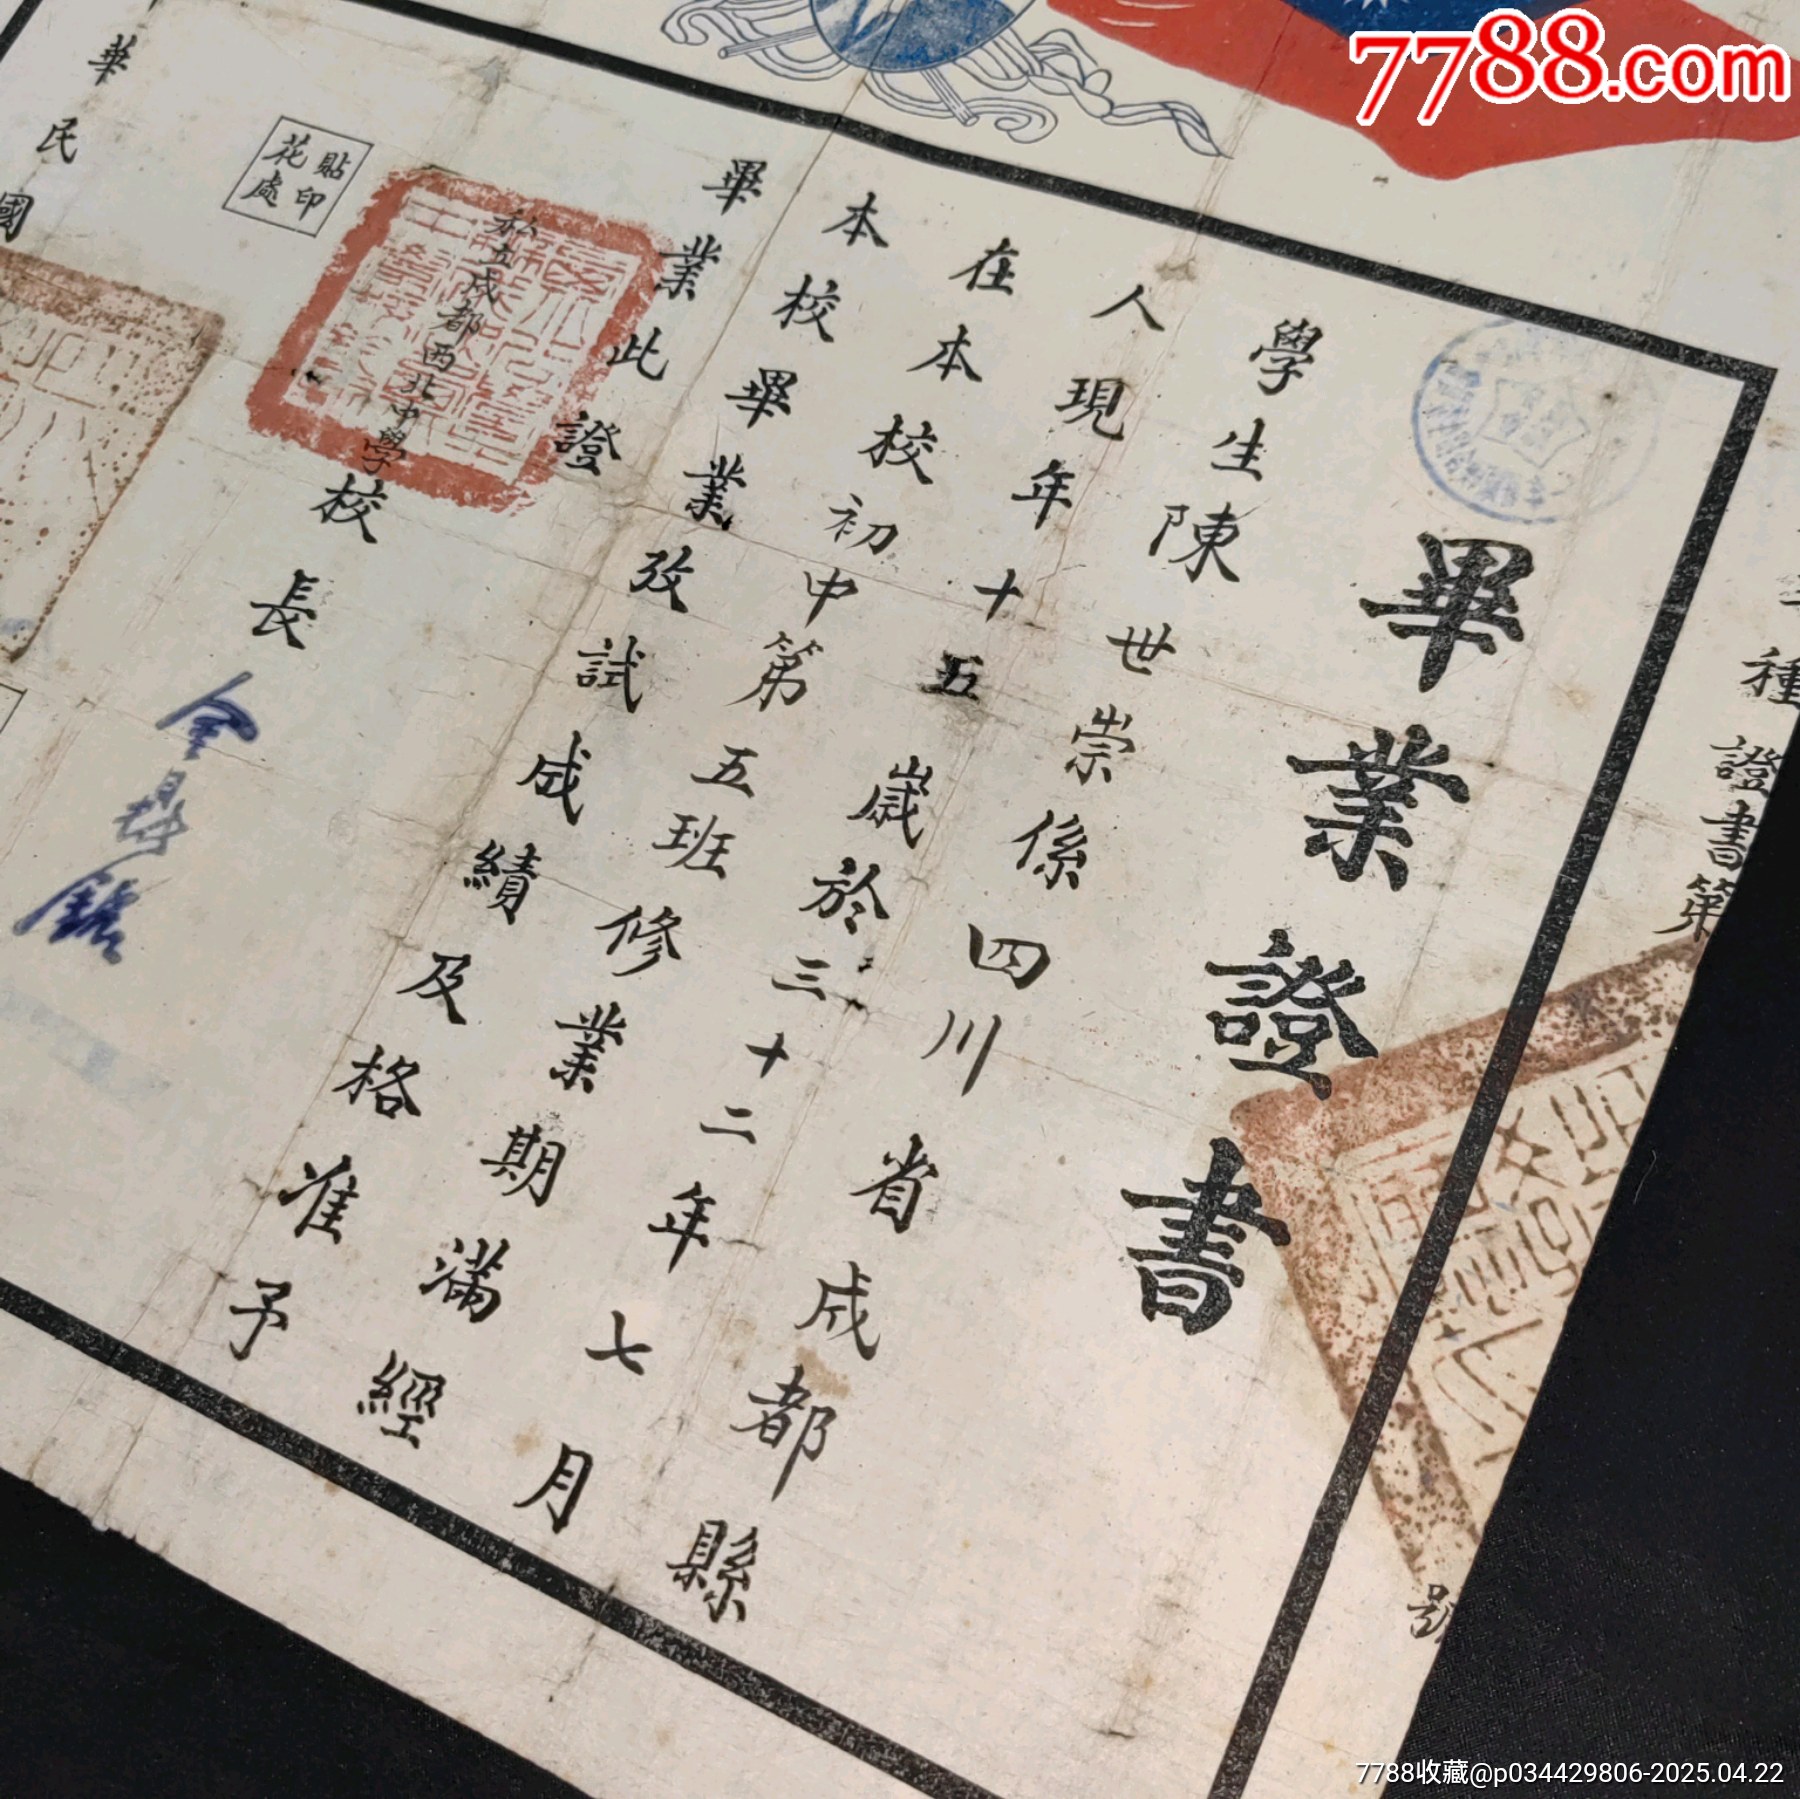 7788.com
種證書第 號
畢業證書
學生陳世崇係四川省成都縣
人現年十五歲於三十二年七月
在本校初中第五班修業期滿經
本校畢業攷試成績及格准予
畢業此證
私立成都西北中學校長 金鼎
貼印花處
華民國
7788收藏@p034429806-2025.04.22